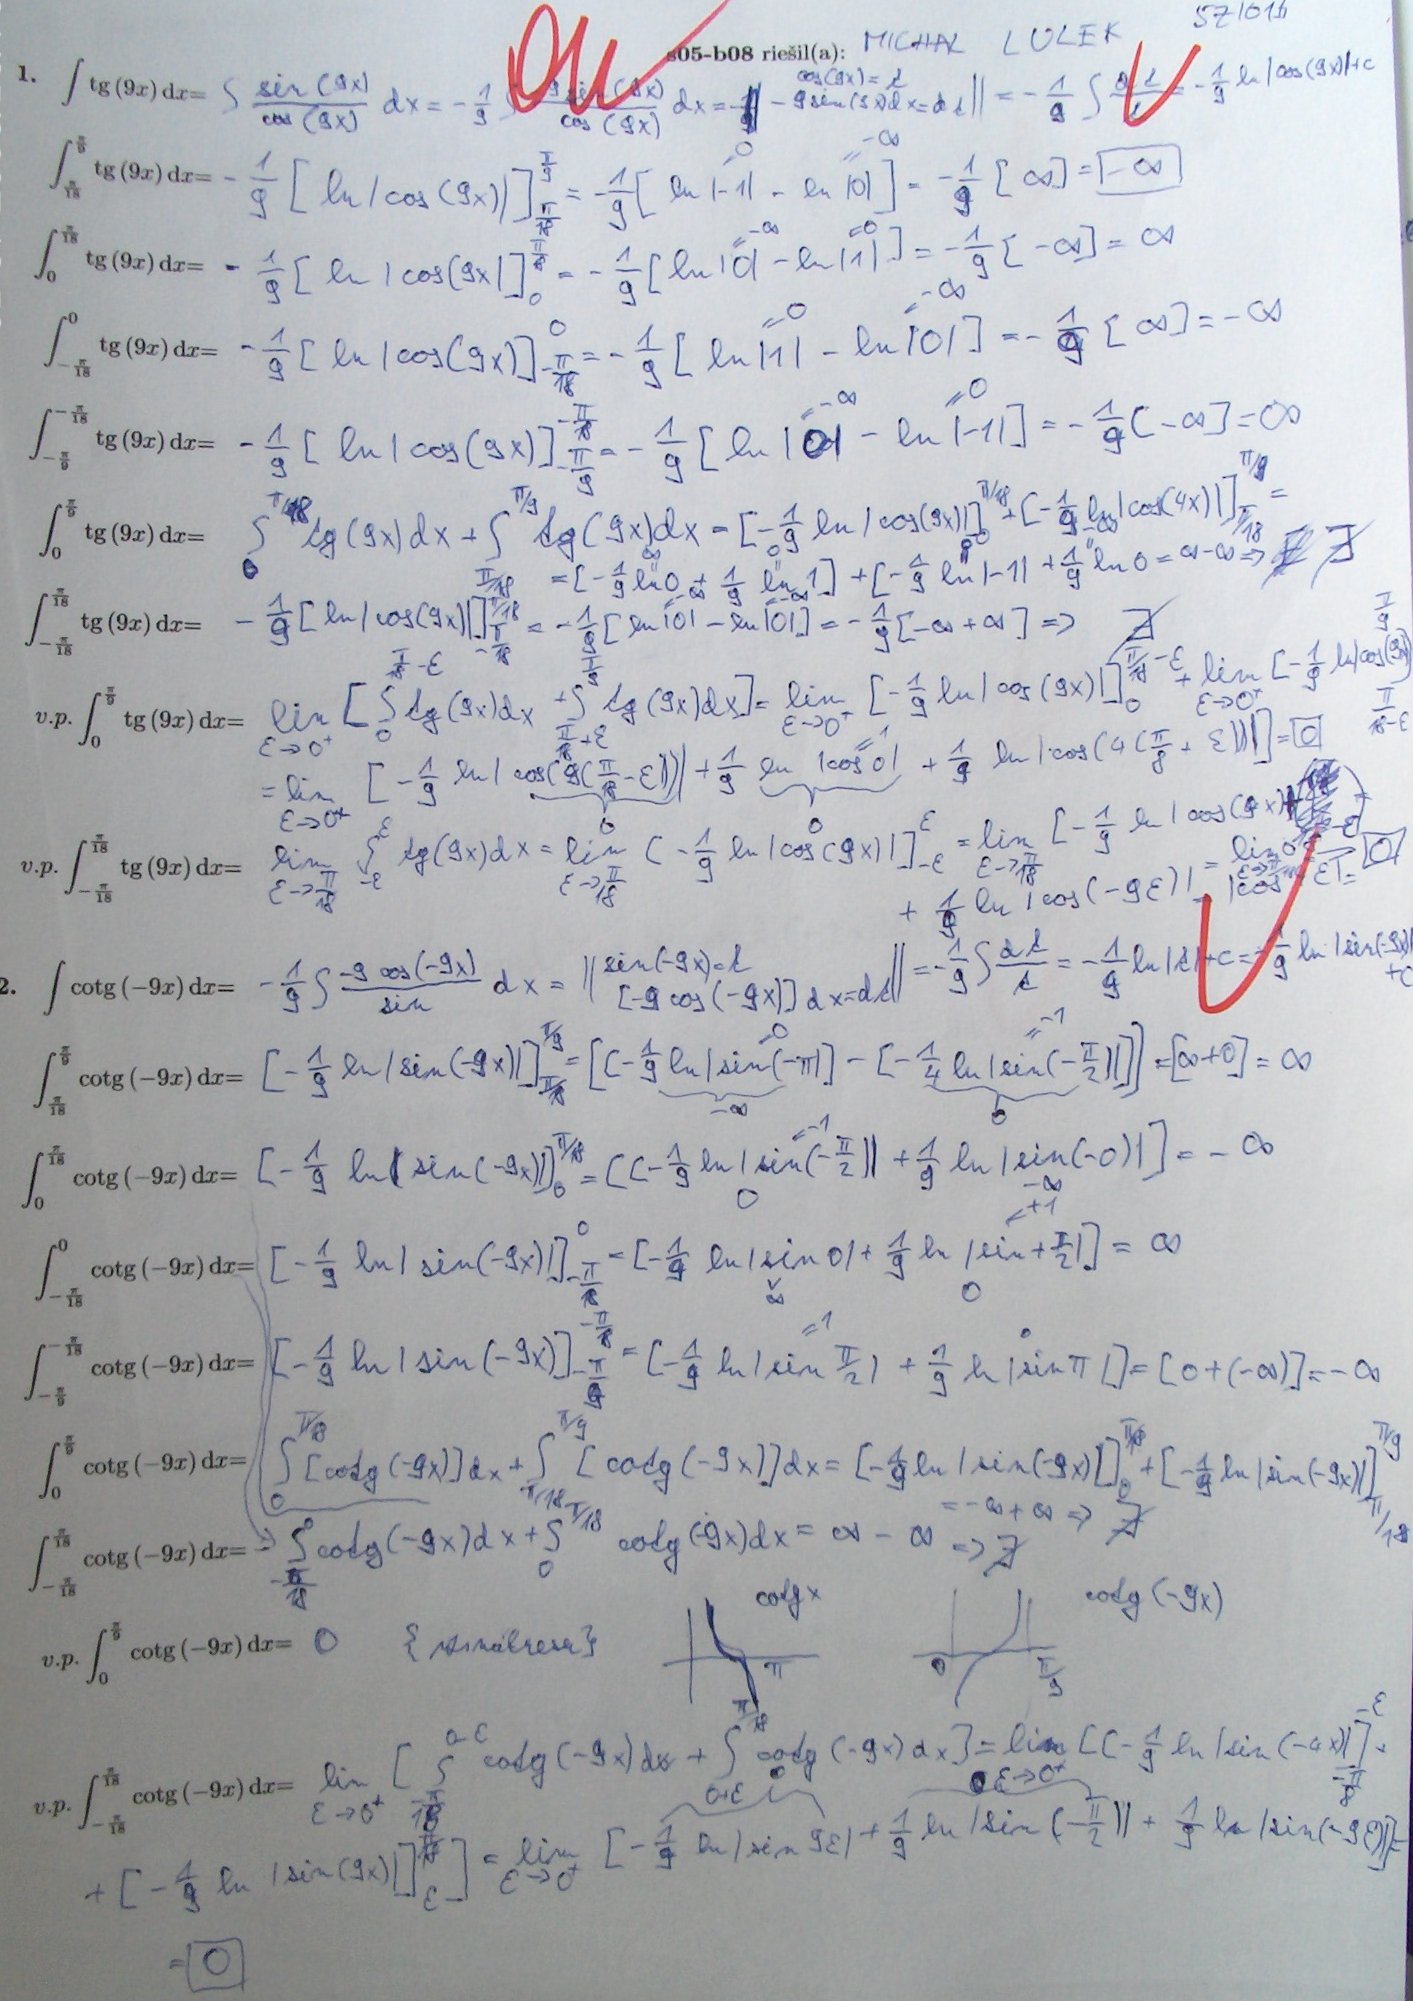 s05-b08 riešil(a): MICHAL LULEK 5ZI01
1. ∫ tg (9x) dx= ∫ sin(9x)/cos(9x) dx = -1/9 ∫ -9 sin(9x)/cos(9x) dx = || cos(9x)=t -9sin(9x)dx=dt || = -1/9 ∫ dt/t = -1/9 ln|cos(9x)|+c
∫_{π/18}^{π/9} tg (9x) dx= -1/9 [ ln|cos(9x)| ]_{π/18}^{π/9} = -1/9 [ ln|-1| - ln|0| ] = -1/9 [ ∞ ] = -∞
∫_0^{π/18} tg (9x) dx= -1/9 [ ln|cos(9x| ]_0^{π/18} = -1/9 [ ln|0| - ln|1| ] = -1/9 [ -∞ ] = ∞
∫_{-π/18}^0 tg (9x) dx= -1/9 [ ln|cos(9x) ]_{-π/18}^0 = -1/9 [ ln|1| - ln|0| ] = -1/9 [ ∞ ] = -∞
∫_{-π/9}^{-π/18} tg (9x) dx= -1/9 [ ln|cos(9x) ]_{-π/9}^{-π/18} = -1/9 [ ln|0| - ln|-1| ] = -1/9 [ -∞ ] = ∞
∫_0^{π/9} tg (9x) dx= ∫_0^{π/18} tg(9x)dx + ∫_{π/18}^{π/9} tg(9x)dx = [ -1/9 ln|cos(9x)| ]_0^{π/18} + [ -1/9 ln|cos(4x)| ]_{π/18}^{π/9} =
= [ -1/9 ln 0 + 1/9 ln 1 ] + [ -1/9 ln|-1| + 1/9 ln 0 = ∞-∞ ⇒ ∄
∫_{-π/18}^{π/18} tg (9x) dx= -1/9 [ ln|cos(9x)| ]_{-π/18}^{π/18} = -1/9 [ ln|0| - ln|0| ] = -1/9 [ -∞ + ∞ ] ⇒ ∄
v.p. ∫_0^{π/9} tg (9x) dx= lim_{ε→0+} [ ∫_0^{π/18-ε} tg(9x)dx + ∫_{π/18+ε}^{π/9} tg(9x)dx ] = lim_{ε→0+} [ -1/9 ln|cos(9x)| ]_0^{π/18-ε} + lim_{ε→0+} [ -1/9 ln|cos(9x) ]_{π/18-ε}^{π/9}
= lim_{ε→0+} [ -1/9 ln|cos(9(π/18-ε))| + 1/9 ln|cos 0| + 1/9 ln|cos(4(π/8+ε))| ] = 0
v.p. ∫_{-π/18}^{π/18} tg (9x) dx= lim_{ε→π/18} ∫_{-ε}^{ε} tg(9x)dx = lim_{ε→π/18} [ -1/9 ln|cos(9x)| ]_{-ε}^{ε} = lim_{ε→π/18} [ -1/9 ln|cos(9x)
+ 1/9 ln|cos(-9ε)| = 0
2. ∫ cotg (−9x) dx= -1/9 ∫ -9 cos(-9x)/sin dx = || sin(-9x)=t [-9 cos(-9x)] dx=dt || = -1/9 ∫ dt/t = -1/9 ln|t|+c = -1/9 ln|sin(-9x)| +c
∫_{π/18}^{π/9} cotg (−9x) dx= [ -1/9 ln|sin(-9x)| ]_{π/18}^{π/9} = [[ -1/9 ln|sin(-π| ] - [ -1/4 ln|sin(-π/2)| ]] = [∞+0] = ∞
∫_0^{π/18} cotg (−9x) dx= [ -1/9 ln| sin(-9x)| ]_0^{π/18} = [[ -1/9 ln|sin(-π/2)| + 1/9 ln|sin(-0)| ] = -∞
∫_{-π/18}^0 cotg (−9x) dx= [ -1/9 ln|sin(-9x)| ]_{-π/18}^0 = [ -1/9 ln|sin 0| + 1/9 ln|sin+π/2| ] = ∞
∫_{-π/9}^{-π/18} cotg (−9x) dx= [ -1/9 ln|sin(-9x) ]_{-π/9}^{-π/18} = [ -1/9 ln|sin π/2| + 1/9 ln|sin π| ] = [ 0+(-∞) ] = -∞
∫_0^{π/9} cotg (−9x) dx= ∫_0^{π/18} [cotg(-9x)]dx + ∫_{π/18}^{π/9} [cotg(-9x)]dx = [ -1/9 ln|sin(-9x)| ]_0^{π/18} + [ -1/9 ln|sin(-9x)| ]_{π/18}^{π/9}
= -∞ + ∞ ⇒ ∄
∫_{-π/18}^{π/18} cotg (−9x) dx= ∫_{-π/18}^0 cotg(-9x)dx + ∫_0^{π/18} cotg(-9x)dx = ∞ - ∞ ⇒ ∄
cotg x cotg(-9x)
v.p. ∫_0^{π/9} cotg (−9x) dx= 0
π 0 π/9
v.p. ∫_{-π/18}^{π/18} cotg (−9x) dx= lim_{ε→0+} [ ∫_{-π/18}^{0-ε} cotg(-9x)dx + ∫_{0+ε}^{π/18} cotg(-9x)dx ] = lim_{ε→0+} [[ -1/9 ln|sin(-4x)| ]_{-π/8}^{-ε} +
+ [ -1/9 ln|sin(9x)| ]_ε^{π/18} ] = lim_{ε→0+} [ -1/9 ln|sin 9ε| + 1/9 ln|sin(-π/2)| + 1/9 ln|sin(-9ε)| ] =
= 0